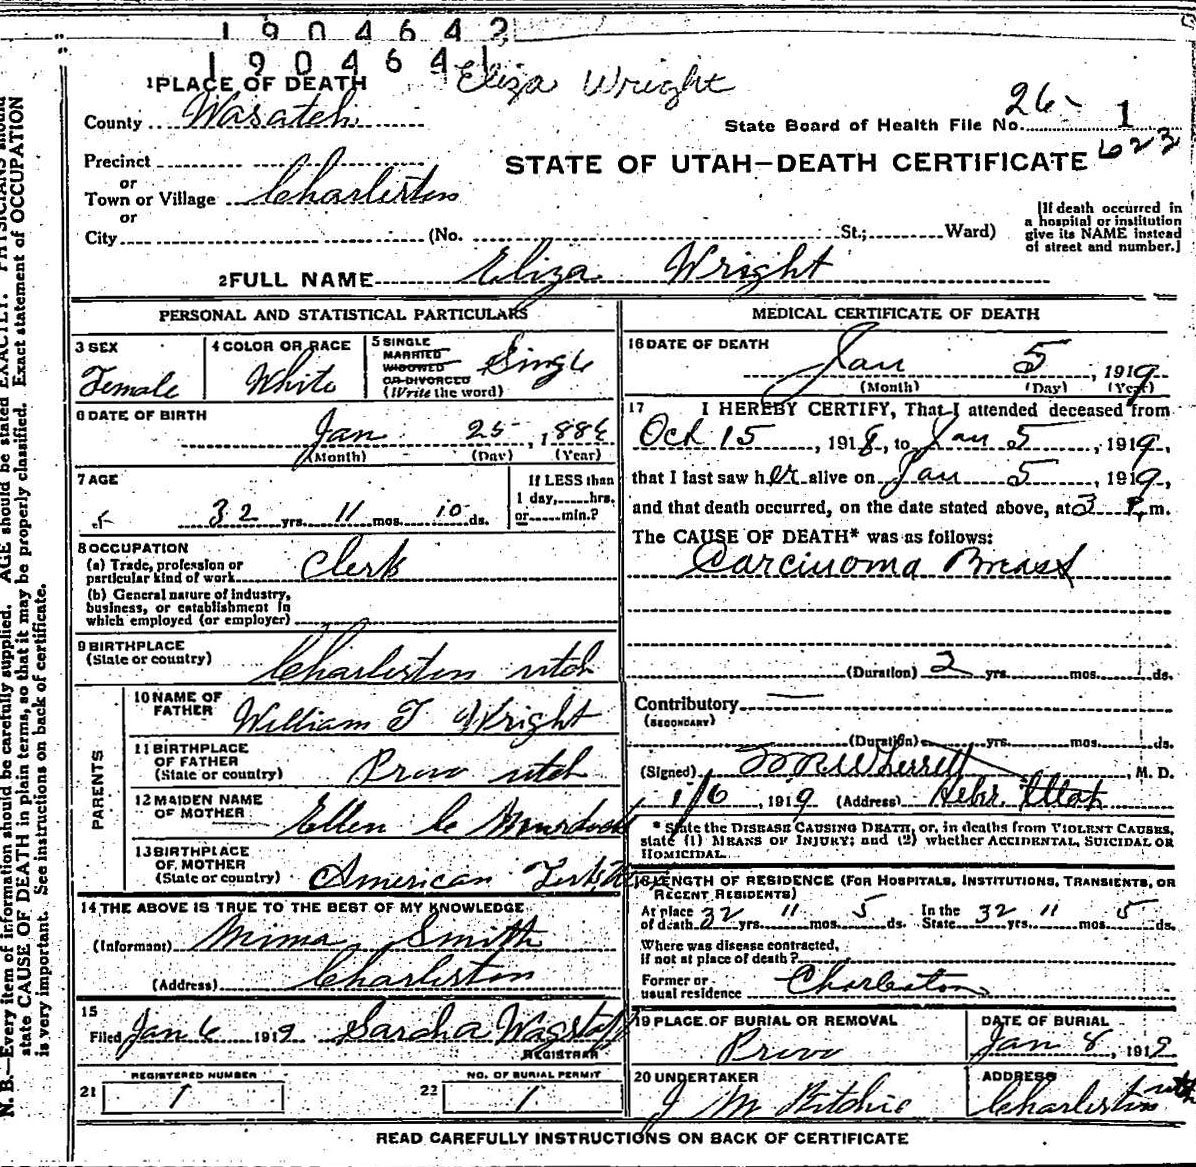 1904642
1904641
Eliza Wright
1 PLACE OF DEATH
County Wasatch
State Board of Health File No. 26- 1
623
STATE OF UTAH—DEATH CERTIFICATE
Precinct
or
Town or Village Charleston
or
City (No. St.; Ward)
[If death occurred in
a hospital or institution
give its NAME instead
of street and number.]
2 FULL NAME Eliza Wright
PERSONAL AND STATISTICAL PARTICULARS
3 SEX
Female
4 COLOR OR RACE
White
5 SINGLE
MARRIED
WIDOWED
OR DIVORCED
(Write the word)
Single
6 DATE OF BIRTH
Jan 25, 188
(Month) (Day) (Year)
7 AGE
32 yrs. 11 mos. 10 ds.
If LESS than
1 day, hrs.
or min.?
8 OCCUPATION
(a) Trade, profession or
particular kind of work Clerk
(b) General nature of industry,
business, or establishment in
which employed (or employer)
9 BIRTHPLACE
(State or country) Charleston utah
PARENTS
10 NAME OF
FATHER William T Wright
11 BIRTHPLACE
OF FATHER
(State or country) Provo utah
12 MAIDEN NAME
OF MOTHER Ellen C Murdock
13 BIRTHPLACE
OF MOTHER
(State or country) American Fork
14 THE ABOVE IS TRUE TO THE BEST OF MY KNOWLEDGE
(Informant) Mima Smith
(Address) Charleston
15
Filed Jan 6 1919 Saraha Wagstaff
REGISTRAR
REGISTERED NUMBER
21 1
NO. OF BURIAL PERMIT
22 1
MEDICAL CERTIFICATE OF DEATH
16 DATE OF DEATH
Jan 5, 1919
(Month) (Day) (Year)
17 I HEREBY CERTIFY, That I attended deceased from
Oct 15, 1918, to Jan 5, 1919,
that I last saw her alive on Jan 5, 1919,
and that death occurred, on the date stated above, at 3 P.m.
The CAUSE OF DEATH* was as follows:
Carcinoma Breast
(Duration) 2 yrs. mos. ds.
Contributory —
(SECONDARY)
(Duration) yrs. mos. ds.
(Signed) Wherrett, M. D.
1/6, 1919 (Address) Heber Utah
* State the DISEASE CAUSING DEATH, or, in deaths from VIOLENT CAUSES,
state (1) MEANS OF INJURY; and (2) whether ACCIDENTAL, SUICIDAL OR
HOMICIDAL.
18 LENGTH OF RESIDENCE (FOR HOSPITALS, INSTITUTIONS, TRANSIENTS, OR
RECENT RESIDENTS)
At place
of death 32 yrs. 11 mos. 5 ds. In the
State 32 yrs. 11 mos. 5 ds.
Where was disease contracted,
if not at place of death?
Former or
usual residence Charleston
19 PLACE OF BURIAL OR REMOVAL
Provo
DATE OF BURIAL
Jan 8, 1919
20 UNDERTAKER
J M Ritchie
ADDRESS
Charleston utah
READ CAREFULLY INSTRUCTIONS ON BACK OF CERTIFICATE
N. B.—Every item of information should be carefully supplied. AGE should be stated EXACTLY. PHYSICIANS should
state CAUSE OF DEATH in plain terms, so that it may be properly classified. Exact statement of OCCUPATION
is very important. See instructions on back of certificate.